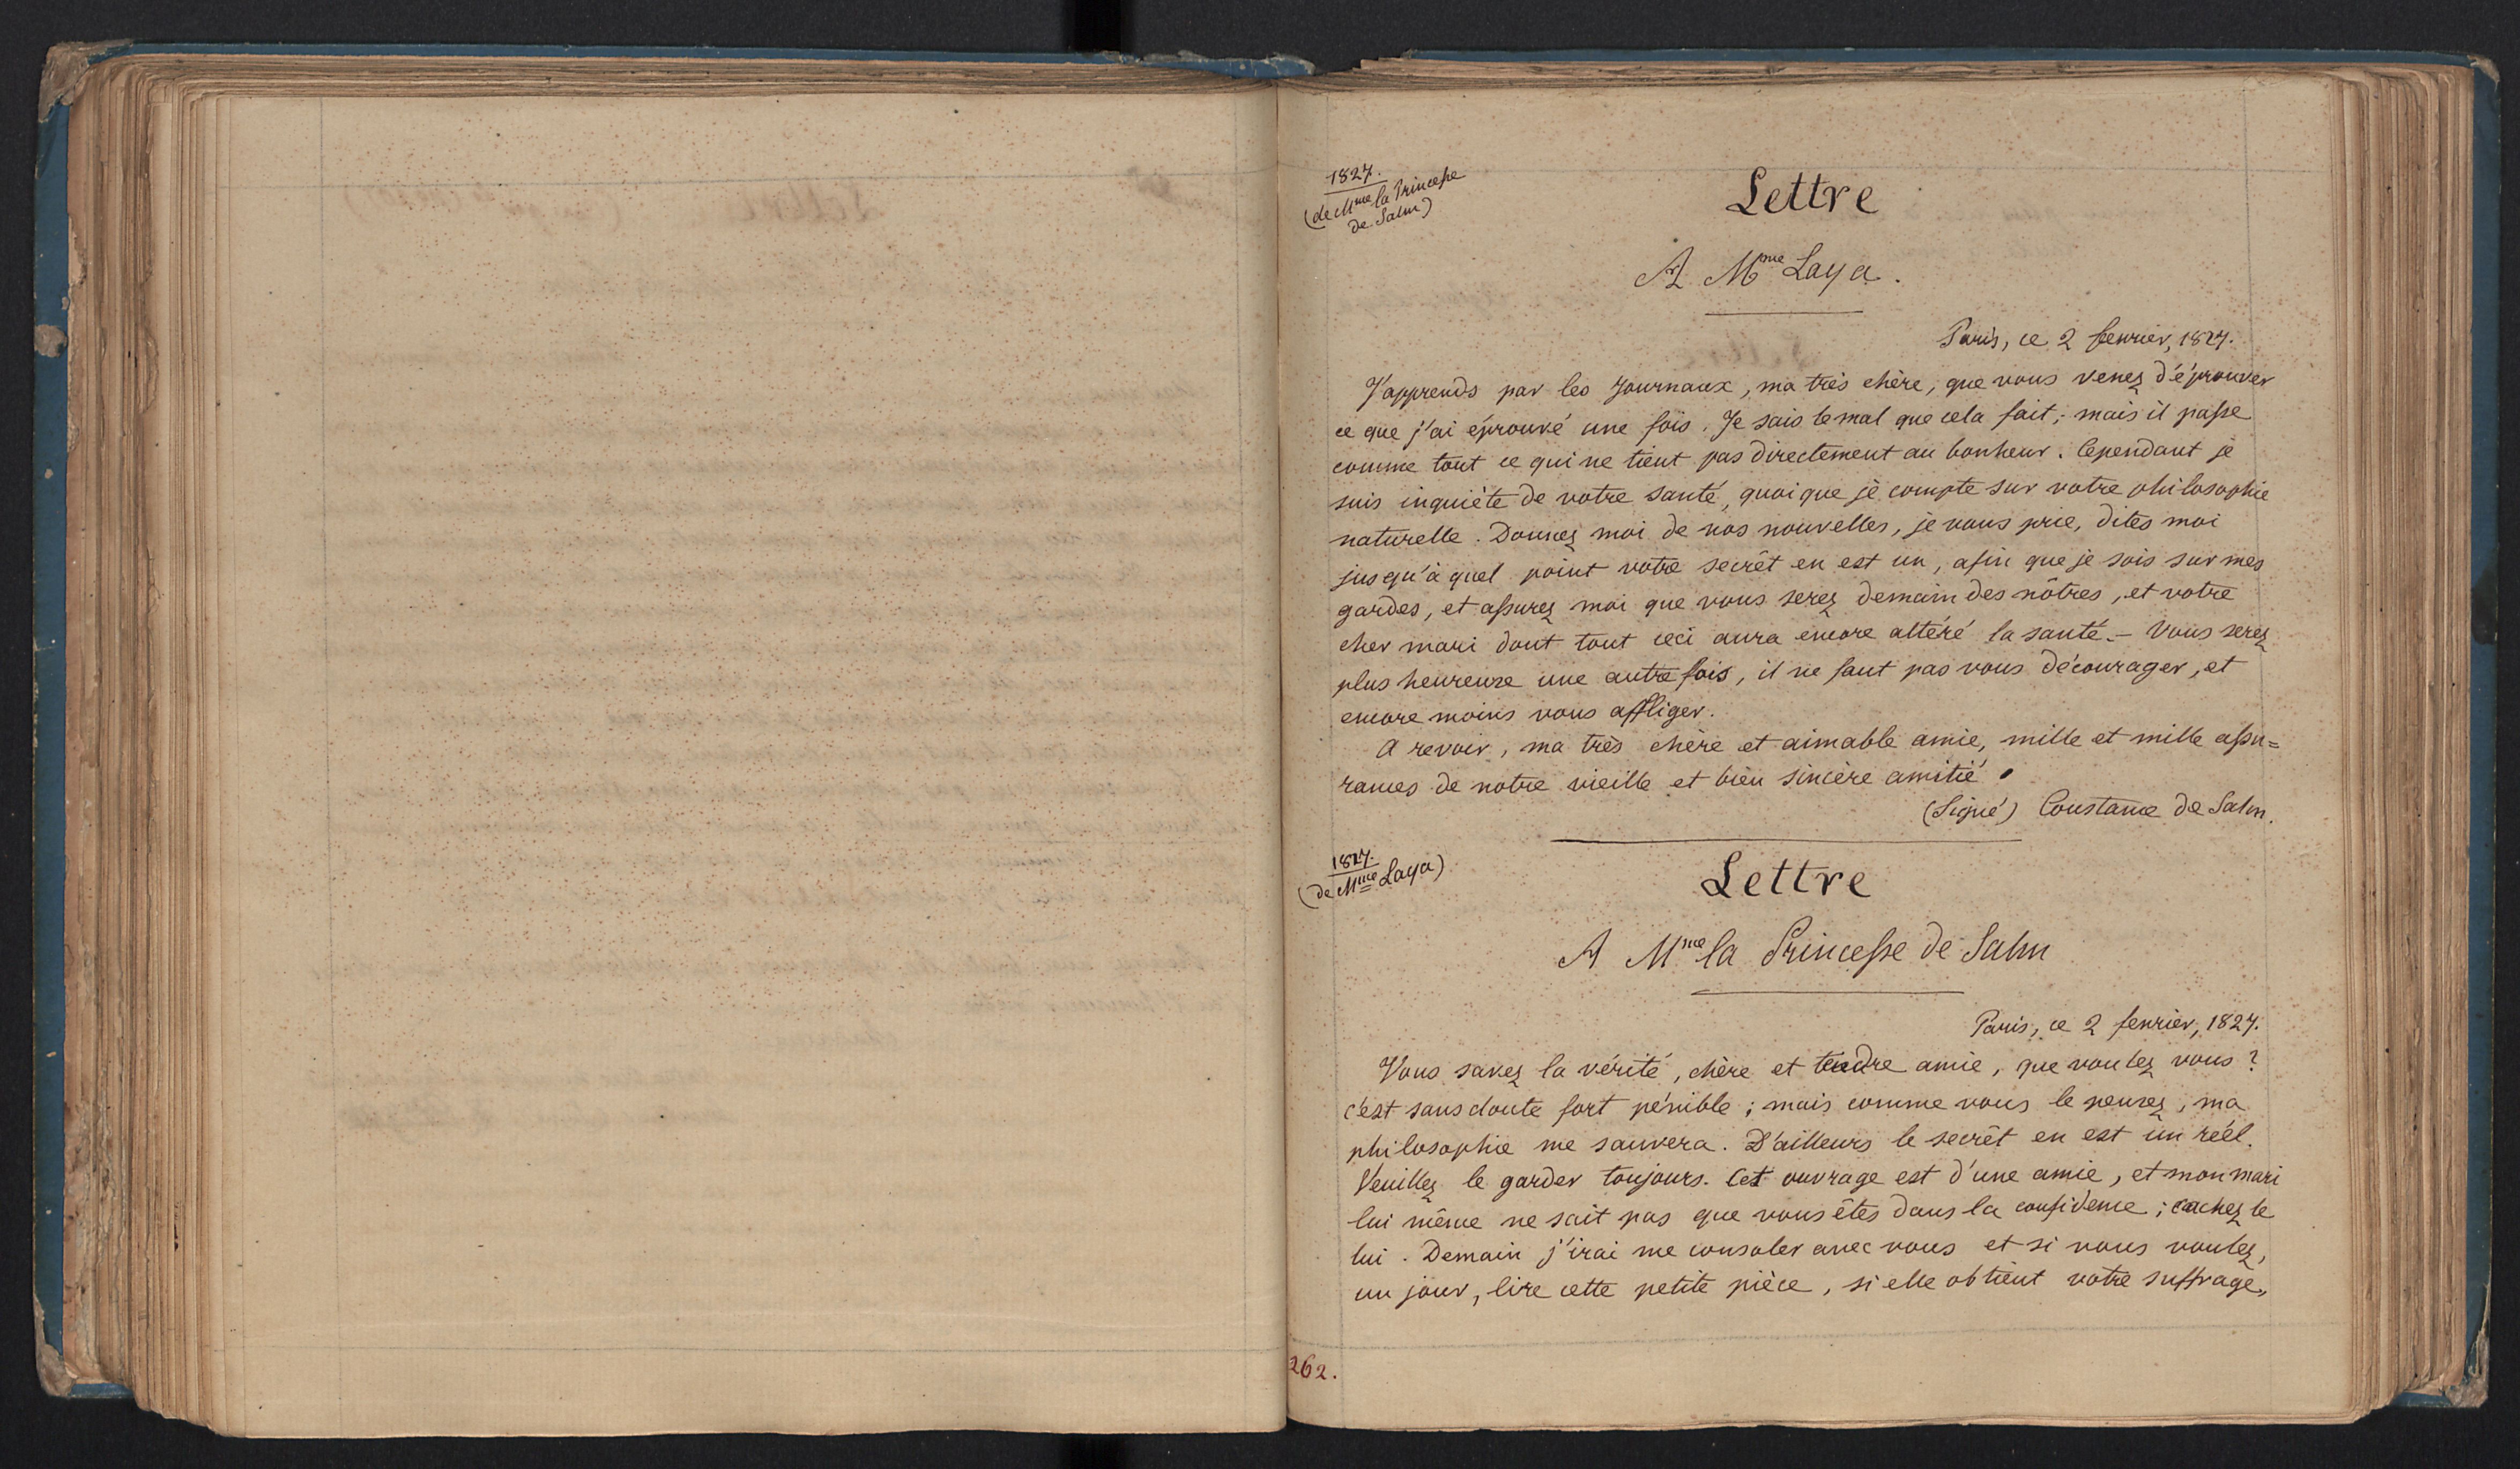 1827.
(de Mme la Princesse
de Salm)
Lettre
A Mme Laya.
Paris, ce 2 fevrier, 1827.
J'apprends par les Journaux, ma très chère, que vous venez d'éprouver
ce que j'ai éprouvé une fois. Je sais le mal que cela fait; mais il passe
comme tout ce qui ne tient pas directement au bonheur. Cependant je
suis inquiète de votre santé, quoique je compte sur votre philosophie
naturelle. Donnez moi de vos nouvelles, je vous prie, dites moi
jusqu'à quel point votre secrêt en est un, afin que je sois sur mes
gardes, et assurez moi que vous serez demain des nôtres, et votre
cher mari dont tout ceci aura encore altéré la santé. – Vous serez
plus heureuse une autre fois, il ne faut pas vous décourager, et
encore moins vous affliger.
A revoir, ma très chère et aimable amie, mille et mille assu=
rances de notre vieille et bien sincère amitié.
(Signé) Constance de Salm.
1827.
(de Mme Laya)
Lettre
A Mme la Princesse de Salm
Paris, ce 2 fevrier, 1827.
Vous savez la vérité, chère et tendre amie, que voulez vous?
c'est sans doute fort pénible; mais comme vous le pensez, ma
philosophie me sauvera. D'ailleurs le secrêt en est un réel.
Veuillez le garder toujours. Cet ouvrage est d'une amie, et mon mari
lui même ne sait pas que vous êtes dans la confidence; cachez le
lui. Demain j'irai me consoler avec vous et si vous voulez,
un jour, lire cette petite pièce, si elle obtient votre suffrage,
262.